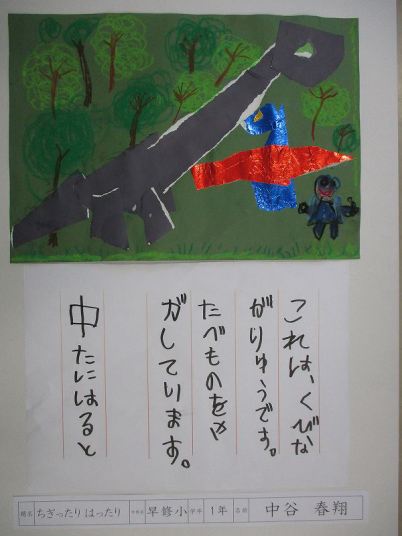 これは、くびな
がりゅうです。
たべものをさ
がしています。
中たにはると
題名 ちぎったり はったり 学校名 早修小 学年 1年 名前 中谷 春翔